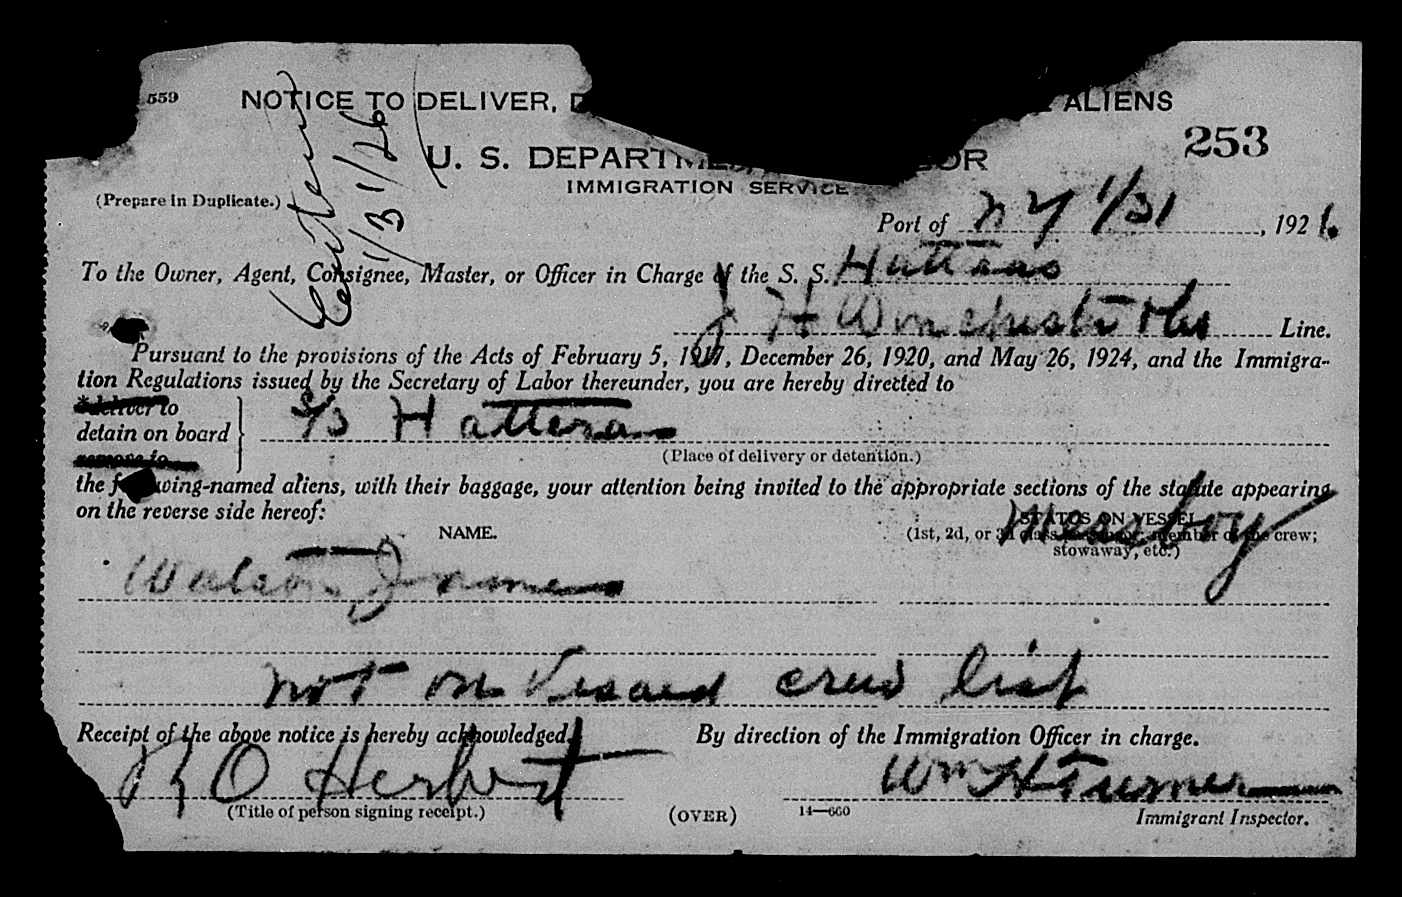 559 NOTICE TO DELIVER, ALIENS
253
U. S. DEPARTME OR
IMMIGRATION SERVICE
(Prepare in Duplicate.)
1/31/26
Port of N Y 1/31, 1926.
To the Owner, Agent, Consignee, Master, or Officer in Charge of the S. S. Hatteras
J H Winchester & Co Line.
Pursuant to the provisions of the Acts of February 5, 1917, December 26, 1920, and May 26, 1924, and the Immigra-
tion Regulations issued by the Secretary of Labor thereunder, you are hereby directed to
*deliver to
detain on board
remove to
S/S Hatteras
(Place of delivery or detention.)
the following-named aliens, with their baggage, your attention being invited to the appropriate sections of the statute appearing
on the reverse side hereof:
NAME.
STATUS ON VESSEL
(1st, 2d, or 3d class passenger; member of the crew;
stowaway, etc.)
Messboy
Watson James
not on Visaed crew list
Receipt of the above notice is hereby acknowledged.
By direction of the Immigration Officer in charge.
R O Herbert
Wm H Turner
(Title of person signing receipt.)
(OVER)
14—660
Immigrant Inspector.